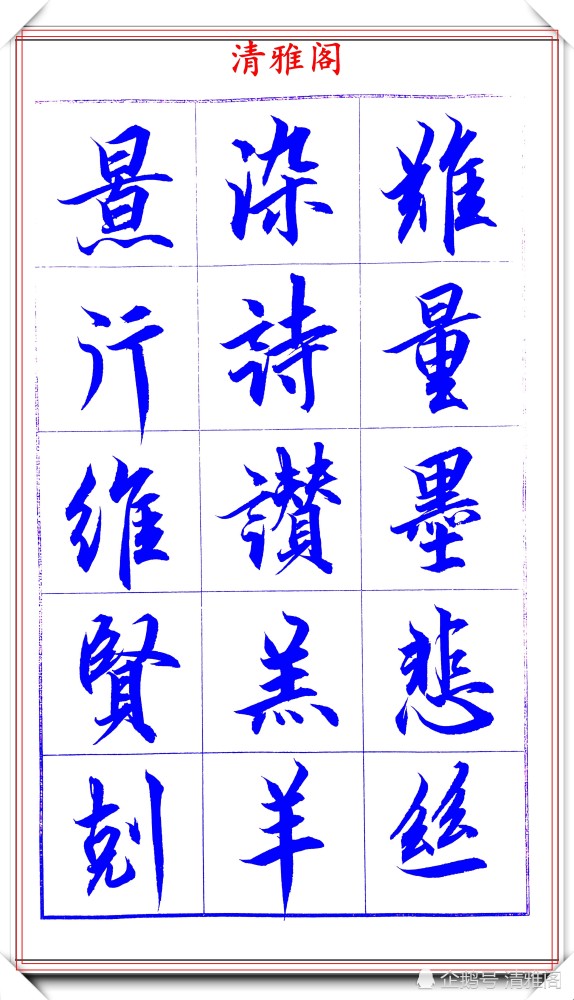 清雅阁
難量墨悲絲
染詩讃羔羊
景行維賢剋
企鹅号 清雅阁